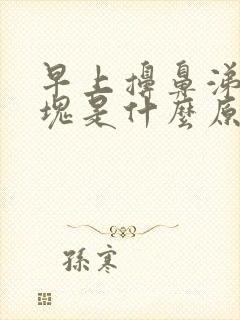 早上擤鼻涕
塊是什麼原
孫寒